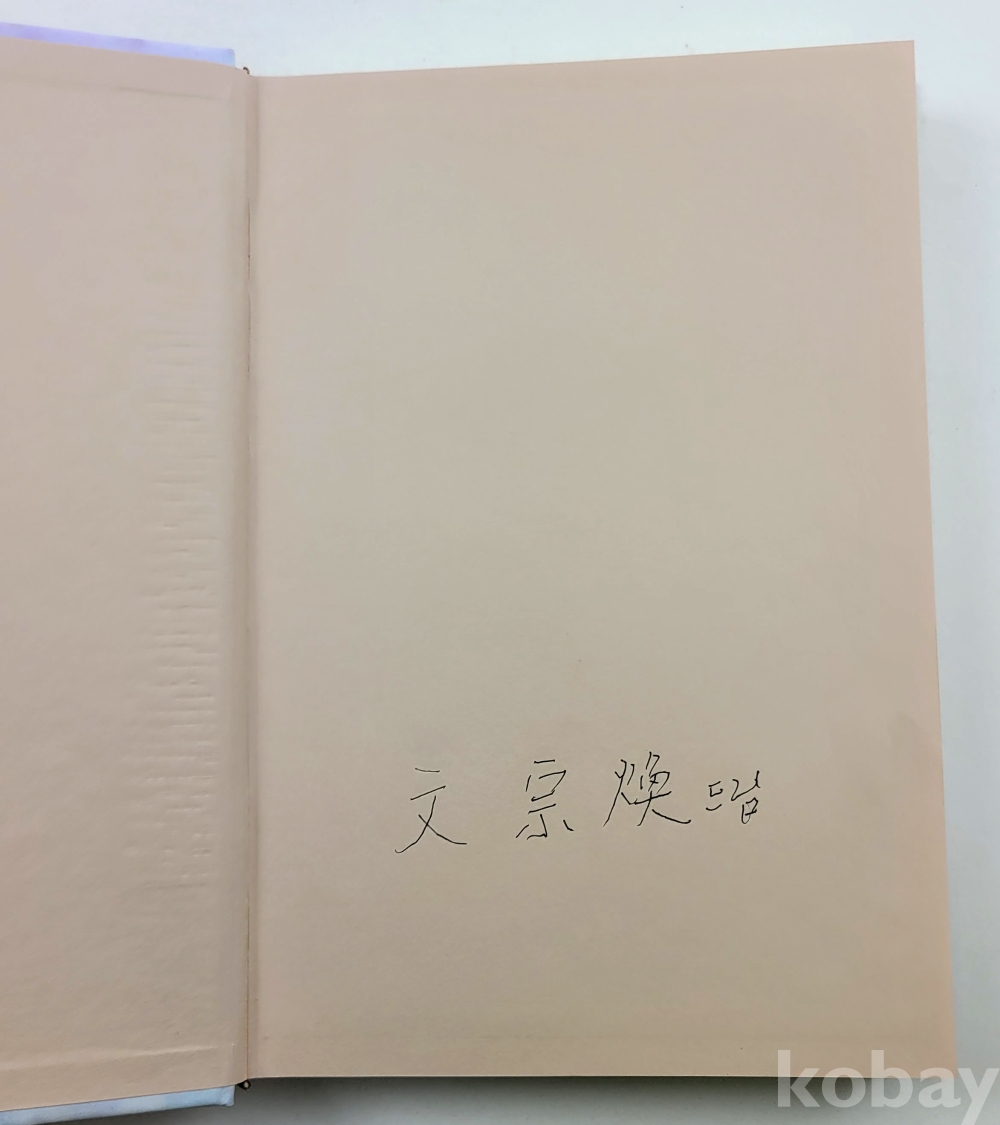 文 宗 煥 드림
kobay